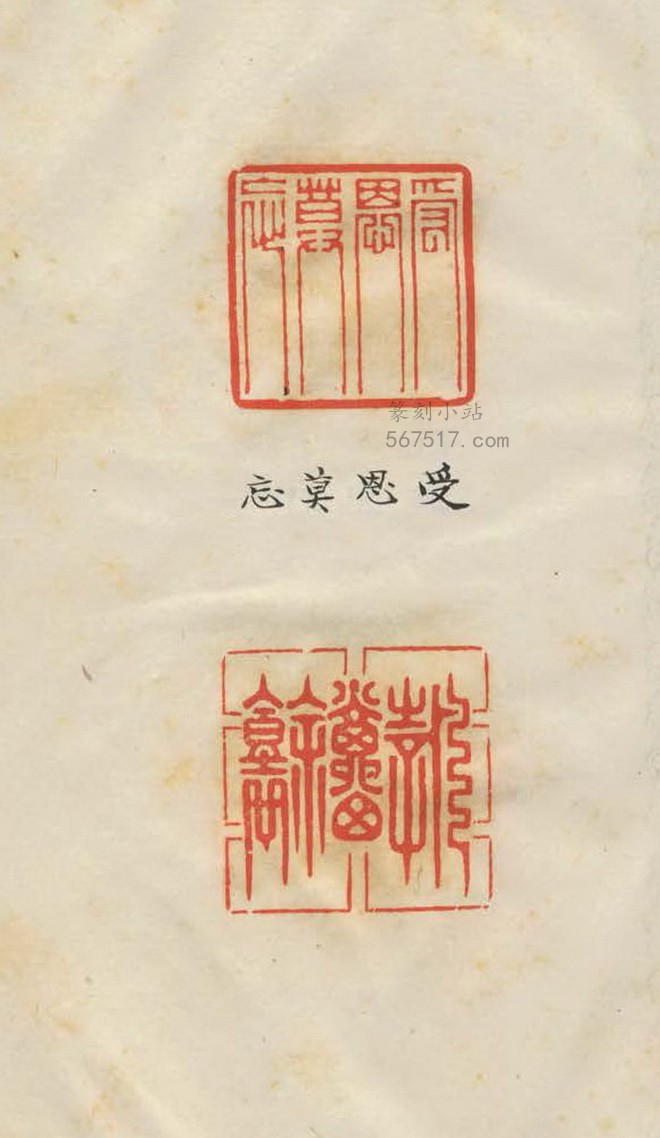 受恩莫忘
篆刻小站
567517.com
受恩莫忘